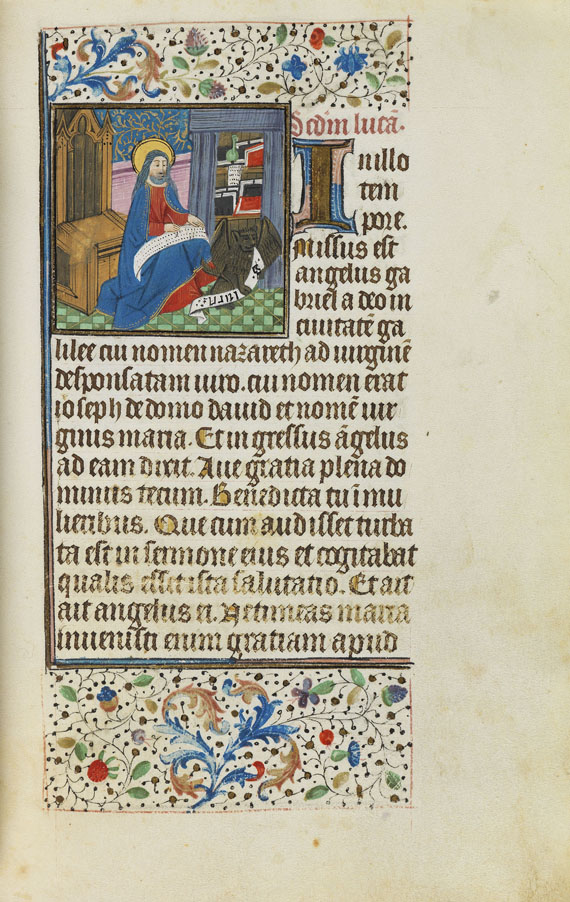 Scd̄m lucā.
In illo
tem
pore.
Missus est
angelus ga
briel a deo in
ciuitatē ga
lilee cui nomen nazareth ad uirginē
desponsatam uiro. cui nomen erat
ioseph de domo dauid et nomē uir
ginis maria. Et in gressus āgelus
ad eam dixit. Aue gratia plena do
minus tecum. Benedicta tu i mu
lieribus. Que cum audisset turba
ta est in sermone eius et cogitabat
qualis esset ista salutatio. Et ait
ait angelus ei. Ne timeas maria
inuenisti enim gratiam apud